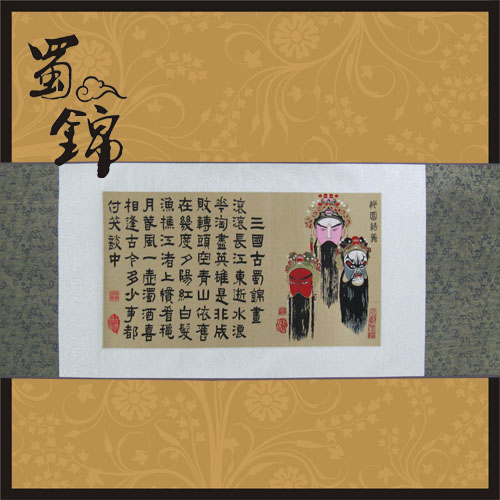 蜀
錦
桃園結義
三國古蜀錦畫
滾滾長江東逝水浪
花淘盡英雄是非成
敗轉頭空青山依舊
在幾度夕陽紅白髮
漁樵江渚上慣看穐
月春風一壺濁酒喜
相逢古今多少事都
付笑談中